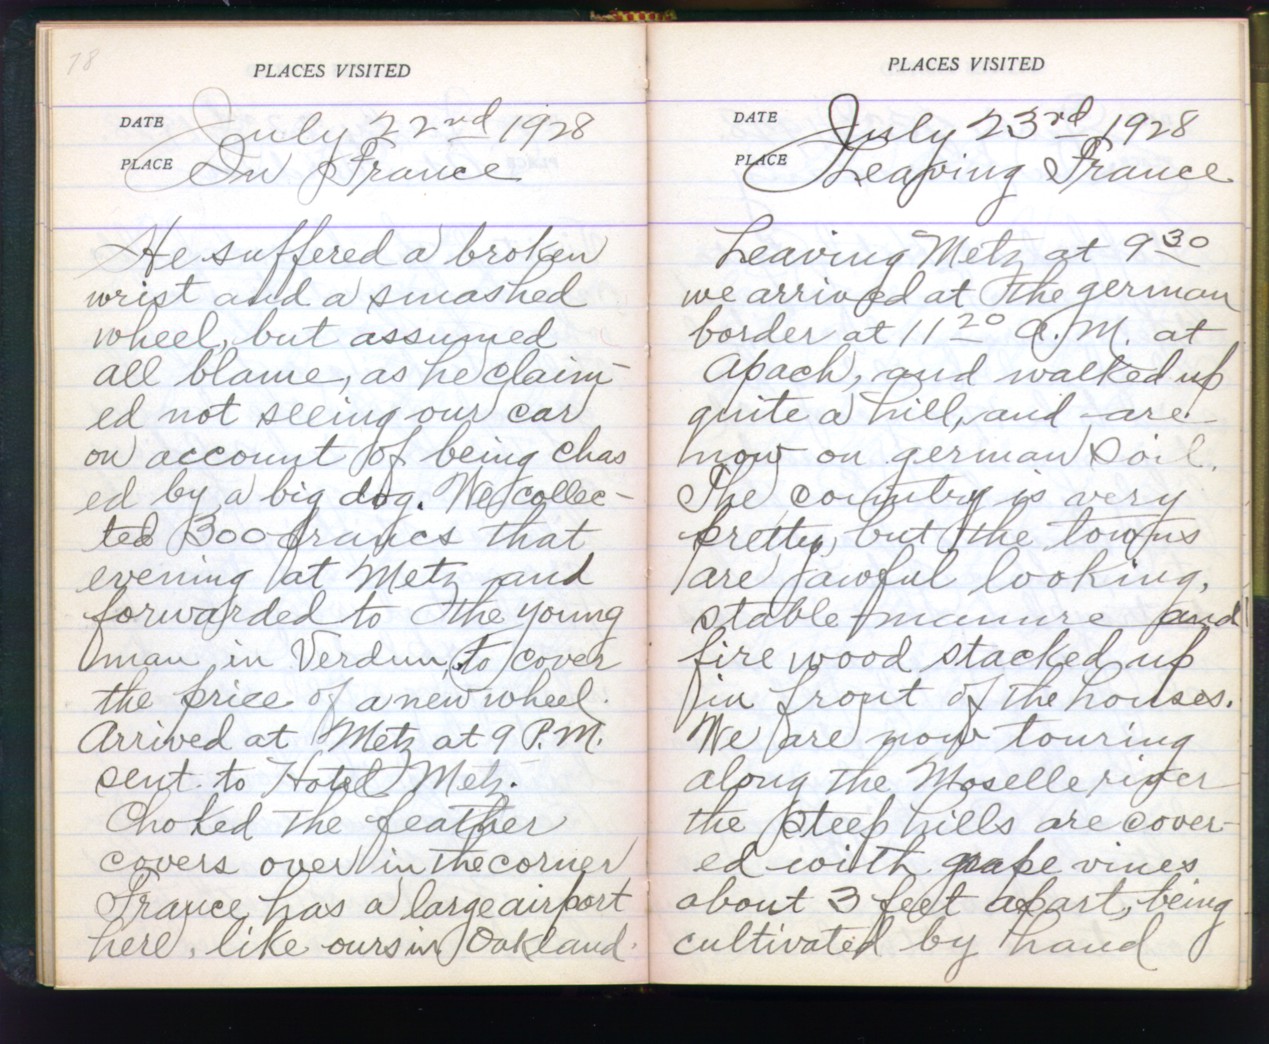 78
PLACES VISITED
DATE July 22nd 1928
PLACE In France
He suffered a broken
wrist and a smashed
wheel, but assumed
all blame, as he claim-
ed not seeing our car
on account of being chas
ed by a big dog. We collec-
ted 300 francs that
evening at Metz and
forwarded to the young
man in Verdun to cover
the price of a new wheel.
Arrived at Metz at 9 P.M.
sent to Hotel Metz.
Choked the feather
covers over in the corner
France has a large airport
here, like ours in Oakland.
PLACES VISITED
DATE July 23rd 1928
PLACE Leaving France
Leaving Metz at 9 30
we arrived at the german
border at 11 20 A.M. at
Apach, and walked up
quite a hill, and are
now on german soil.
The country is very
pretty, but the towns
are awful looking,
stable manure and
fire wood stacked up
in front of the houses.
We are now touring
along the Moselle river
the steep hills are cover-
ed with grape vines
about 3 feet apart, being
cultivated by hand